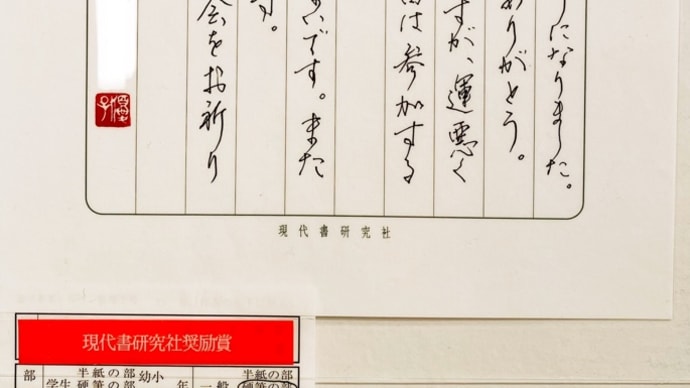 になりました。
ありがとう。
すが、運悪く
は参加する
いです。また
す。
会をお祈り
現代書研究社
現代書研究社奨励賞
部 半紙の部 幼小 半紙の部
学生 硬筆の部 年 一般 硬筆の部